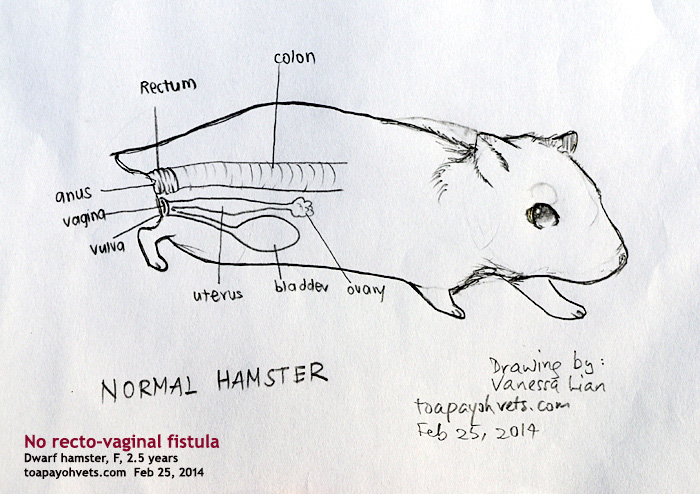 colon
Rectum
anus
vagina
vulva
uterus
bladder
ovary
NORMAL HAMSTER
Drawing by:
Vanessa Lian
toapayohvets.com
Feb 25, 2014
No recto-vaginal fistula
Dwarf hamster, F, 2.5 years
toapayohvets.com Feb 25, 2014